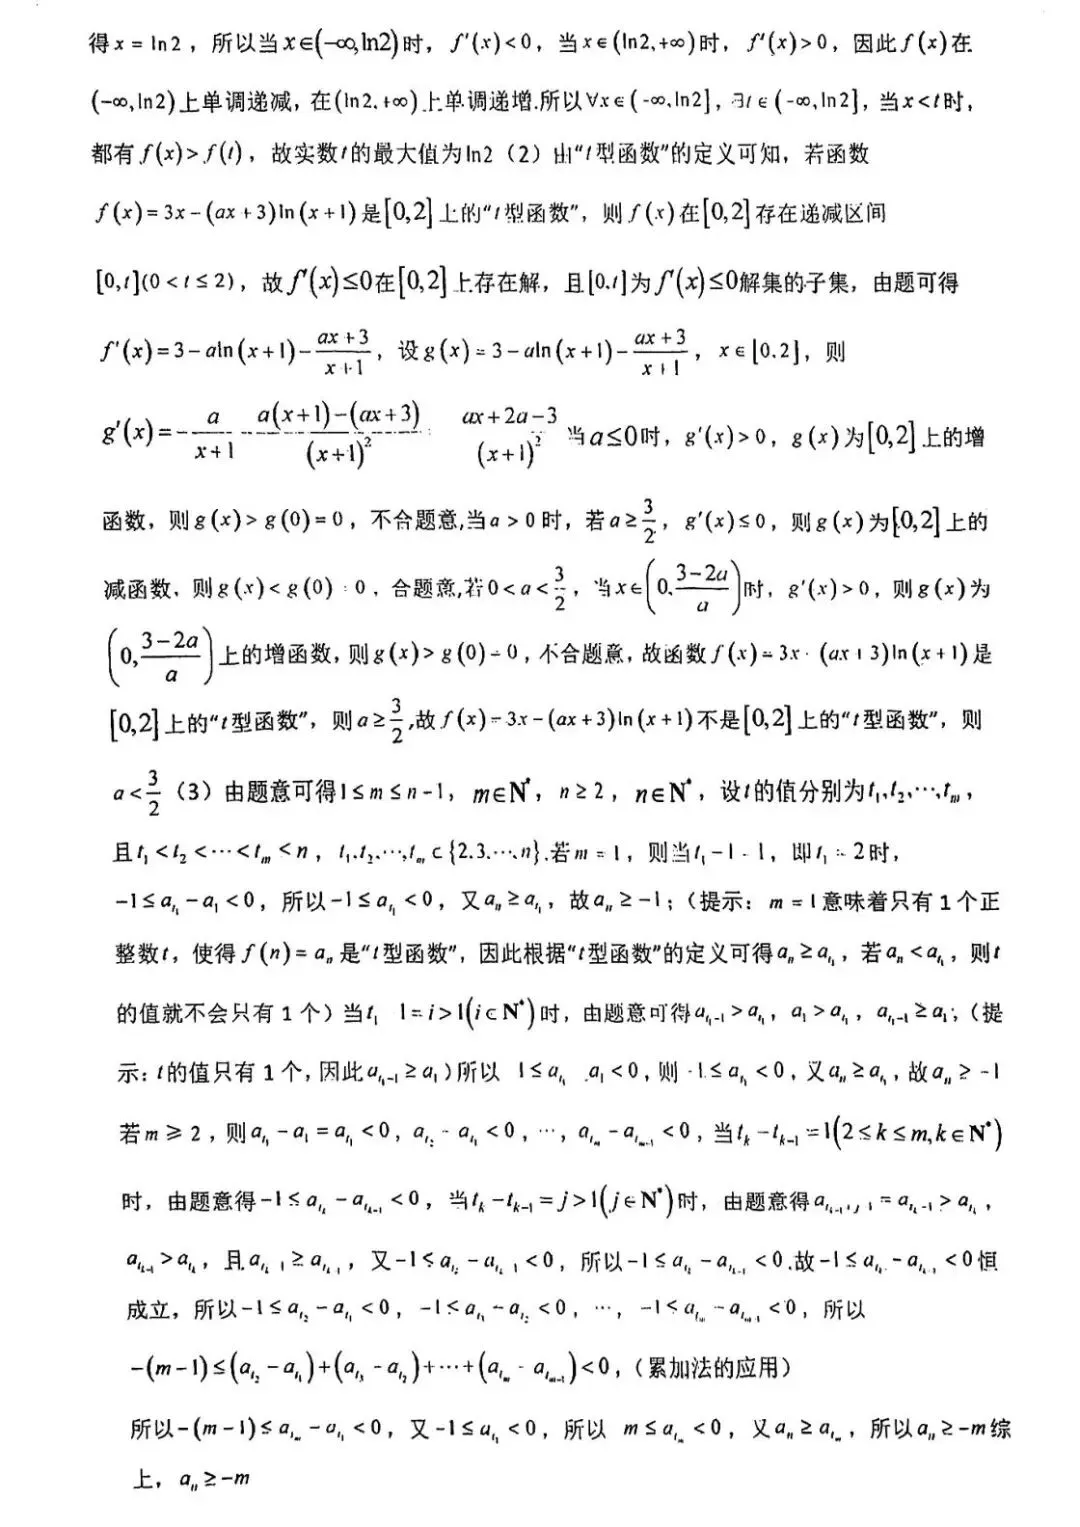 得x = ln2，所以当x∈(-∞,ln2)时，f′(x)<0，当x∈(ln2,+∞)时，f′(x)>0，因此f(x)在
(-∞,ln2)上单调递减，在(ln2,+∞)上单调递增.所以∀x∈(-∞,ln2]，∃t∈(-∞,ln2]，当x<t时，
都有f(x)>f(t)，故实数t的最大值为ln2（2）由“t型函数”的定义可知，若函数
f(x)=3x-(ax+3)ln(x+1)是[0,2]上的“t型函数”，则f(x)在[0,2]存在递减区间
[0,t](0<t≤2)，故f′(x)≤0在[0,2]上存在解，且[0,t]为f′(x)≤0解集的子集，由题可得
f′(x)=3-aln(x+1)-(ax+3)/(x+1)，设g(x)=3-aln(x+1)-(ax+3)/(x+1)，x∈[0,2]，则
g′(x)=-a/(x+1)-(a(x+1)-(ax+3))/(x+1)² (ax+2a-3)/(x+1)² 当a≤0时，g′(x)>0，g(x)为[0,2]上的增
函数，则g(x)>g(0)=0，不合题意,当a>0时，若a≥3/2，g′(x)≤0，则g(x)为[0,2]上的
减函数，则g(x)<g(0)=0，合题意,若0<a<3/2，当x∈(0,(3-2a)/a)时，g′(x)>0，则g(x)为
(0,(3-2a)/a)上的增函数，则g(x)>g(0)=0，不合题意，故函数f(x)=3x-(ax+3)ln(x+1)是
[0,2]上的“t型函数”，则a≥3/2,故f(x)=3x-(ax+3)ln(x+1)不是[0,2]上的“t型函数”，则
a<3/2（3）由题意可得1≤m≤n-1，m∈N*，n≥2，n∈N*，设t的值分别为t₁,t₂,⋯,tₘ，
且t₁<t₂<⋯<tₘ<n，t₁,t₂,⋯,tₘ⊂{2,3,⋯,n}.若m=1，则当t₁-1=1，即t₁=2时，
-1≤a_{t₁}-a₁<0，所以-1≤a_{t₁}<0，又aₙ≥a_{t₁}，故aₙ≥-1；（提示：m=1意味着只有1个正
整数t，使得f(n)=aₙ是“t型函数”，因此根据“t型函数”的定义可得aₙ≥a_{t₁}，若aₙ<a_{t₁}，则t
的值就不会只有1个）当t₁ 1=i>1(i∈N*)时，由题意可得a_{t₁-1}>a_{t₁}，a₁>a_{t₁}，a_{t₁-1}≥a₁；（提
示：t的值只有1个,因此a_{t₁-1}≥a₁）所以 1≤a_{t₁} a₁<0，则-1≤a_{t₁}<0，又aₙ≥a_{t₁}，故aₙ≥-1
若m⩾2，则a_{t₁}-a₁=a_{t₁}<0，a_{t₂}-a_{t₁}<0，⋯，a_{tₘ}-a_{tₘ₋₁}<0，当t_k-t_{k-1}=1(2≤k≤m,k∈N*)
时，由题意得-1≤a_{t_k}-a_{t_{k-1}}<0，当t_k-t_{k-1}=j>1(j∈N*)时，由题意得a_{t_{k-1}+j-1}=a_{t_k-1}>a_{t_k}，
a_{t_{k-1}}>a_{t_k}，且a_{t_k-1}≥a_{t_{k-1}}，又-1≤a_{t_k}-a_{t_k-1}<0，所以-1≤a_{t_k}-a_{t_{k-1}}<0.故-1≤a_{t_k}-a_{t_{k-1}}<0恒
成立，所以-1≤a_{t₂}-a_{t₁}<0，-1≤a_{t₃}-a_{t₂}<0，⋯，-1≤a_{tₘ}-a_{tₘ₋₁}<0，所以
-(m-1)≤(a_{t₂}-a_{t₁})+(a_{t₃}-a_{t₂})+⋯+(a_{tₘ}-a_{tₘ₋₁})<0，（累加法的应用）
所以-(m-1)≤a_{tₘ}-a_{t₁}<0，又-1≤a_{t₁}<0，所以 m≤a_{tₘ}<0，又aₙ≥a_{tₘ}，所以aₙ≥-m综
上，aₙ≥-m